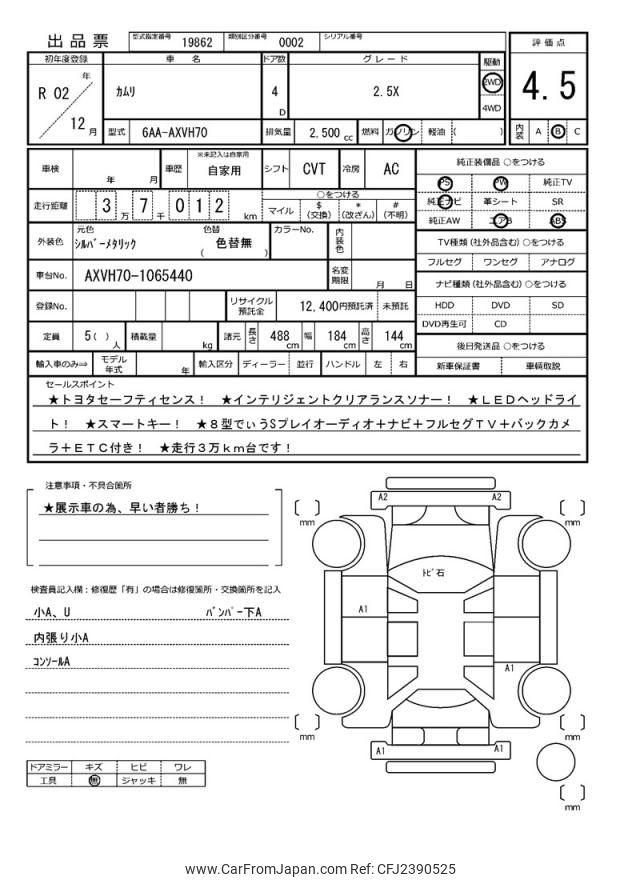 出品票 型式指定番号 19862 類別区分番号 0002 シリアル番号
初年度登録 車名 ドア数 グレード 駆動 評価点
R 02 年 12 月 カムリ 4 D 2.5X 2WD 4WD 4.5
型式 6AA-AXVH70 排気量 2,500 cc 燃料 ガソリン 軽油 ( ) 内装 A B C
車検 年 月 車歴 ※未記入は自家用 自家用 シフト CVT 冷房 AC 純正装備品 ○をつける
PS PW 純正TV
走行距離 3 万 7 千 0 1 2 km ○をつける
マイル $(交換) *(改ざん) #(不明)
純正ナビ 革シート SR
純正AW エアB ABS
外装色 元色 シルバーメタリック 色替 ( 色替無 ) カラーNo. 内装色
TV種類(社外品含む) ○をつける
フルセグ ワンセグ アナログ
車台No. AXVH70-1065440 名変期限 月 日
ナビ種類(社外品含む) ○をつける
登録No. リサイクル預託金 12,400円預託済 未預託
HDD DVD SD
DVD再生可 CD
定員 5( ) 人 積載量 kg 諸元 長さ 488 cm 幅 184 cm 高さ 144 cm
後日発送品 ○をつける
輸入車のみ⇒ モデル年式 年 輸入区分 ディーラー 並行 ハンドル 左 右 新車保証書 車輌取説
セールスポイント
★トヨタセーフティセンス! ★インテリジェントクリアランスソナー! ★LEDヘッドライ
ト! ★スマートキー! ★8型でぃうSプレイオーディオ+ナビ+フルセグTV+バックカメ
ラ+ETC付き! ★走行3万km台です!
注意事項・不具合箇所
★展示車の為、早い者勝ち!
検査員記入欄:修復歴「有」の場合は修復箇所・交換箇所を記入
小A、U バンパー下A
内張り小A
コンソールA
ドアミラー キズ ヒビ ワレ
工具 無 ジャッキ 無
A2 A2
mm mm
トビ石
A1
A1
mm mm
A1 A1
mm
www.CarFromJapan.com Ref: CFJ2390525